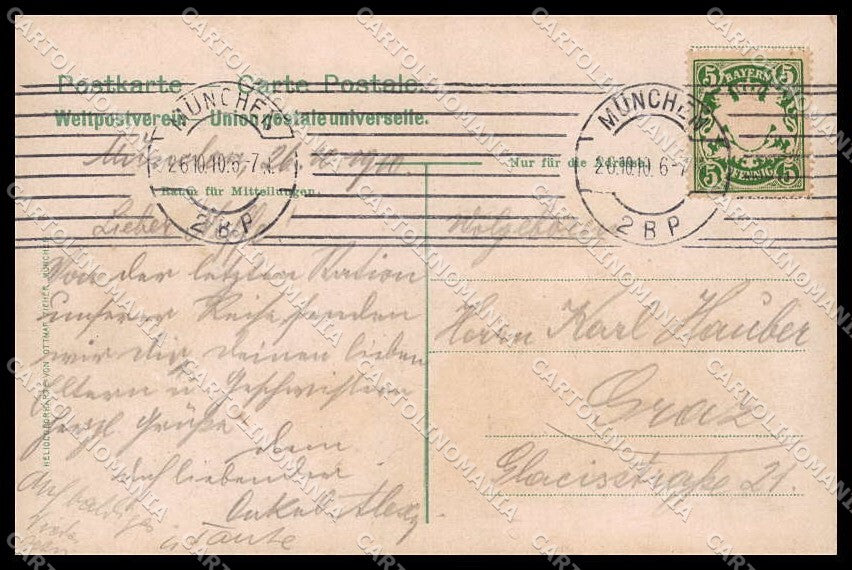 Postkarte Carte Postale.
Weltpostverein Union postale universelle.
München, 26.10.1910.
Nur für die Adresse.
Raum für Mitteilungen.
MÜNCHEN
26.10.10. 6-7
2 B P
MÜNCHEN
26.10.10. 6-7
2 B P
5 BAYERN 5
5 PFENNIG 5
Lieber
Von der letzten Station
unserer Reise senden
wir dir, deinen lieben
Eltern u. Geschwistern
herzl. Grüße
dein
dich liebender
Onkel Alex
u Tante
Auf baldiges
Wohlgeboren
Herrn Karl Hauber
Graz
Glacisstraße 21.
CARTOLINOMANIA